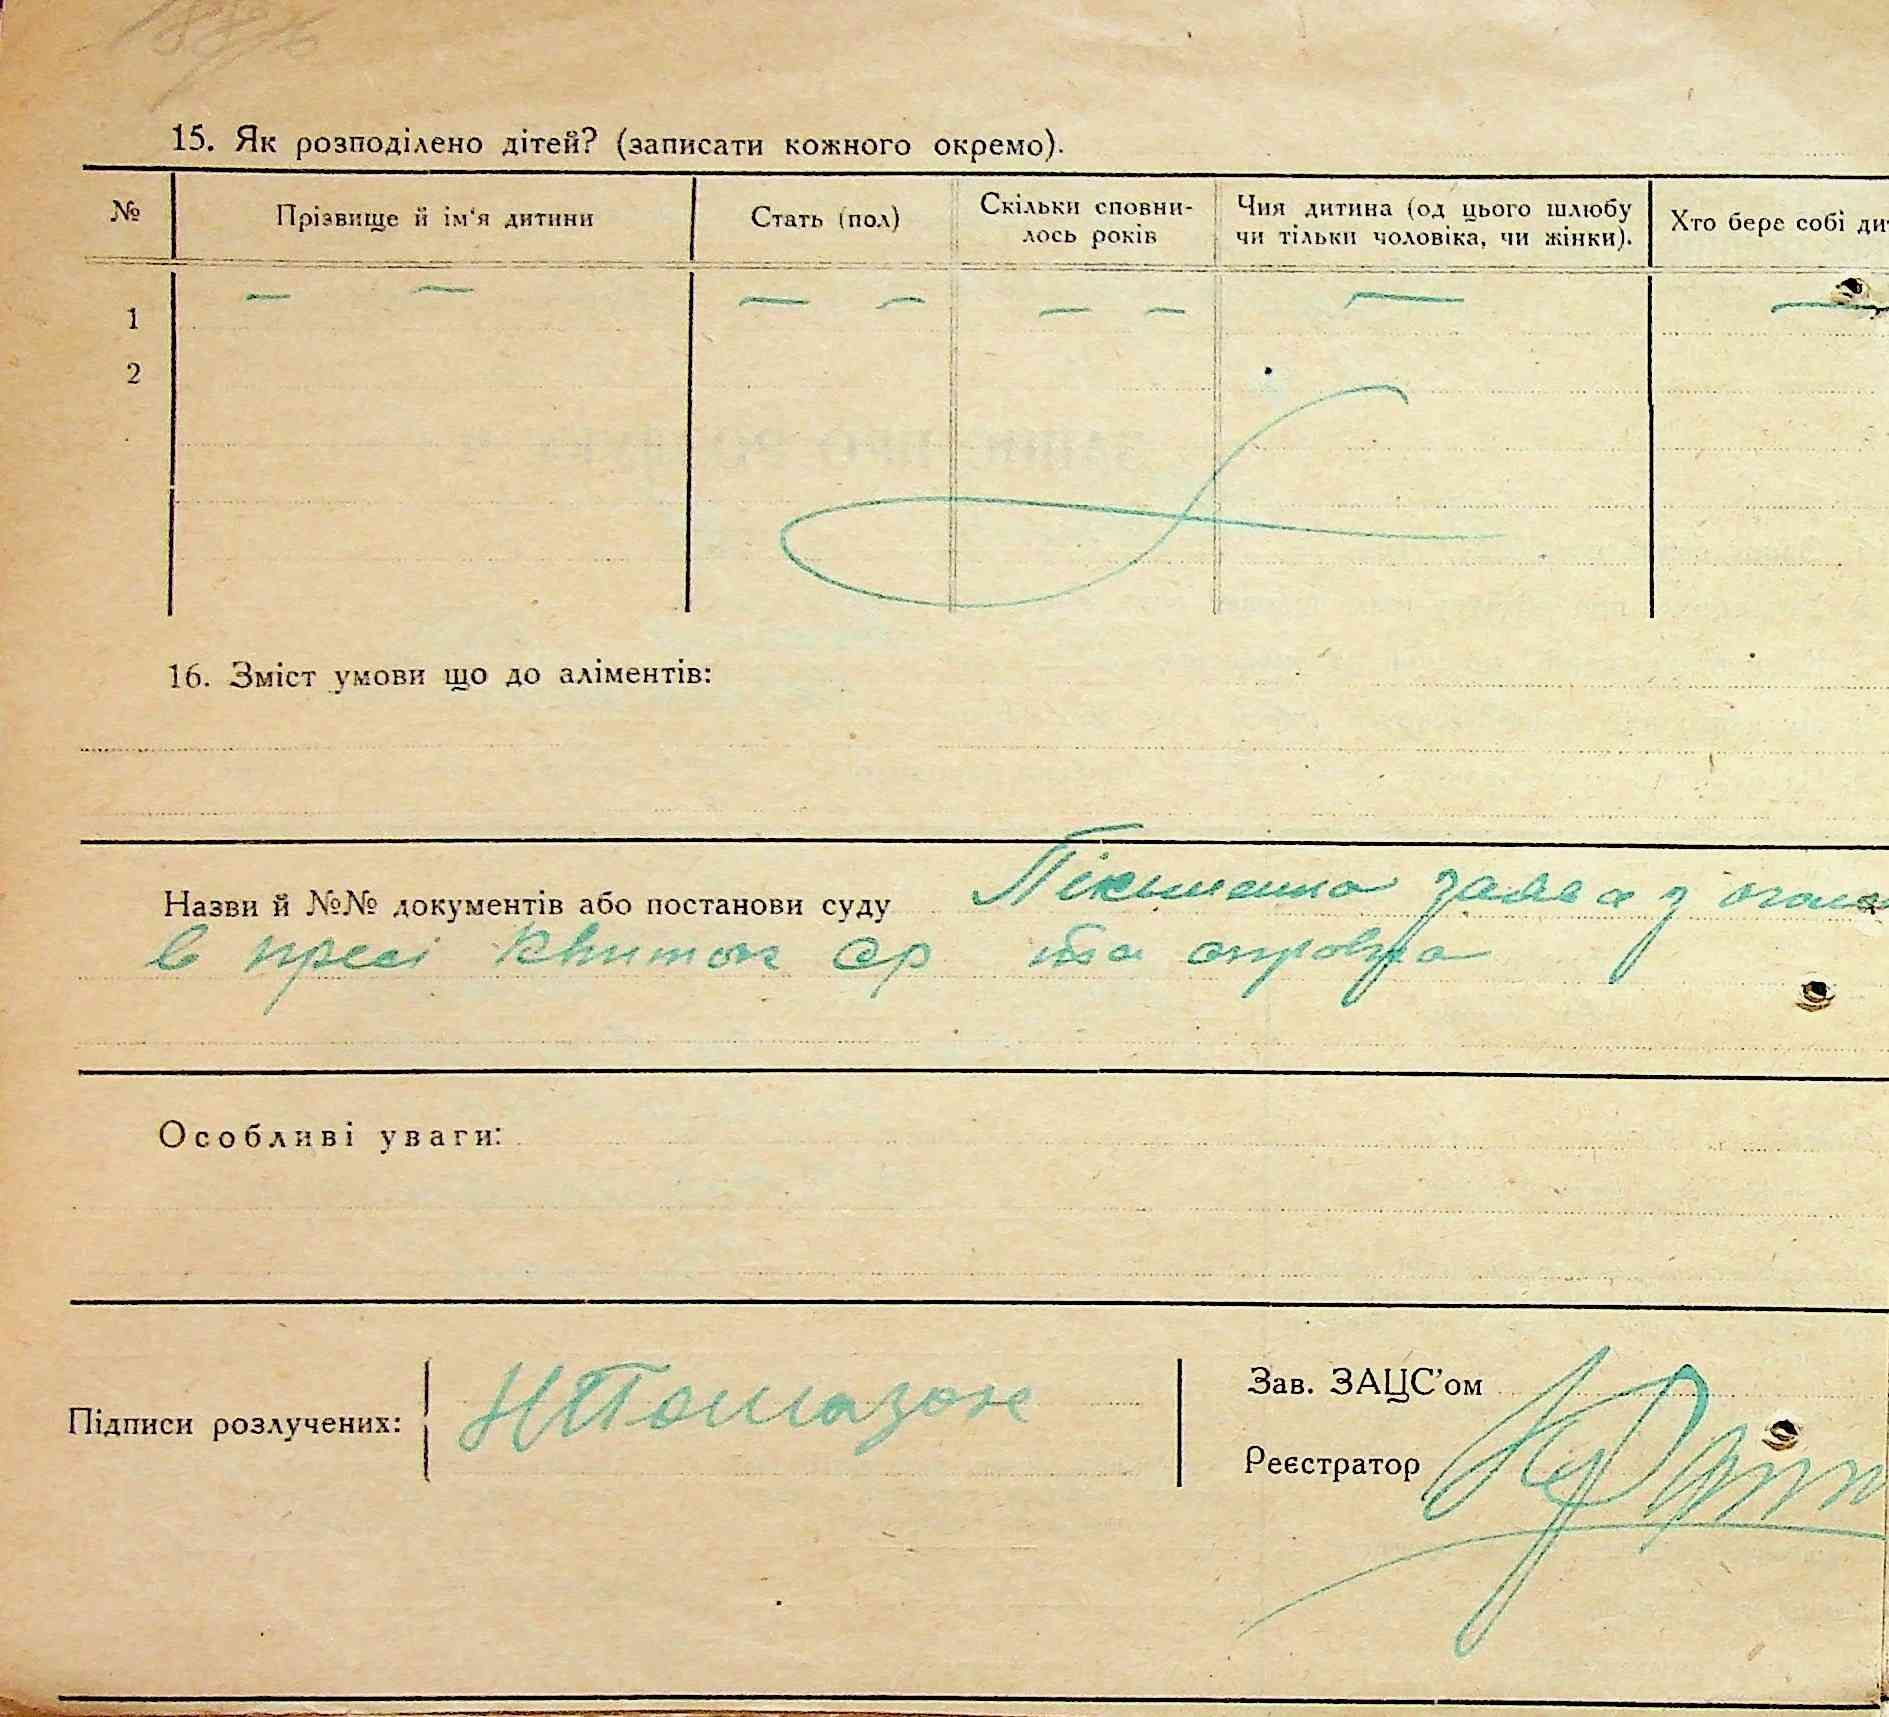 15. Як розподілено дітей? (записати кожного окремо).
№ Прізвище й ім'я дитини Стать (пол) Скільки сповни- Чия дитина (од цього шлюбу Хто бере собі ди
лось років чи тільки чоловіка, чи жінки).
1 — — — — — — — —
2
16. Зміст умови що до аліментів:
Назви й №№ документів або постанови суду Пісьменна заява з
в пресі квиток та
Особливі уваги:
Зав. ЗАЦС'ом
Підписи розлучених:
Реєстратор